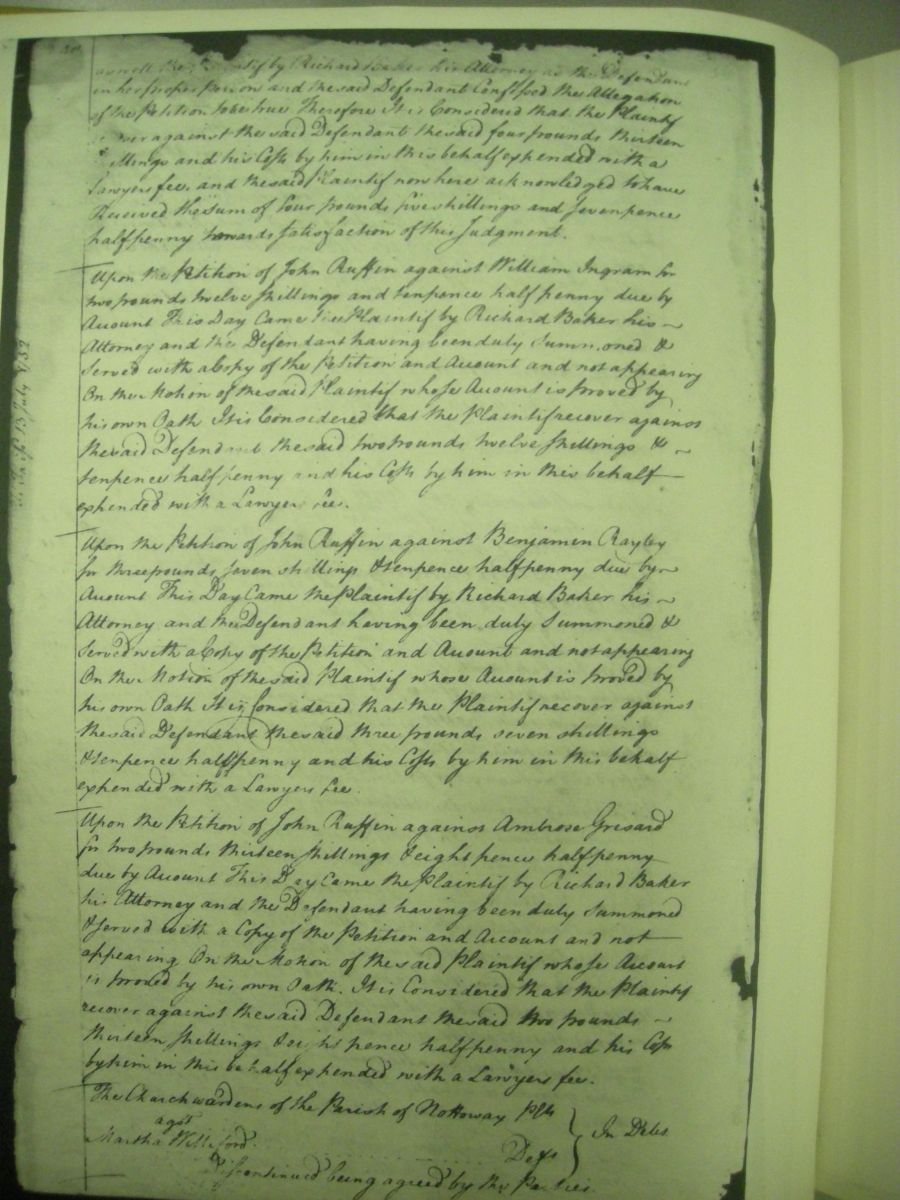 as well the Plaintif by Richard Baker his Attorney as the Defendant
in her proper person and the said Defendant Confessed the Allegation
of the Petition to be true Therefore It is Considered that the Plaintif
against the said Defendant the said four pounds thirteen
and his Costs by him in this behalf expended with a
Lawyers fee. and the said Plaintif now here acknowledged to have
Received the Sum of four pounds five shillings and Sevenpence
halfpenny towards satisfaction of this Judgment.
Upon the Petition of John Ruffin against William Ingram for
two pounds twelve shillings and tenpence halfpenny due by
Account This Day Came the Plaintif by Richard Baker his
Attorney and the Defendant having been duly Summoned &
Served with a Copy of the Petition and Account and not appearing
On the Motion of the said Plaintif whose Account is Proved by
his own Oath It is Considered that the Plaintif recover against
the said Defendant the said two pounds twelve shillings &
tenpence halfpenny and his Costs by him in this behalf
expended with a Lawyers fee.
Upon the Petition of John Ruffin against Benjamin Rayley
for three pounds seven shillings & tenpence halfpenny due by
Account This Day Came the Plaintif by Richard Baker his
Attorney and the Defendant having been duly Summoned &
Served with a Copy of the Petition and Account and not appearing
On the Motion of the said Plaintif whose Account is Proved by
his own Oath It is Considered that the Plaintif recover against
the said Defendant the said three pounds seven shillings
& tenpence halfpenny and his Costs by him in this behalf
expended with a Lawyers fee.
Upon the Petition of John Ruffin against Ambrose Grisard
for two pounds thirteen shillings & eight pence halfpenny
due by Account This Day Came the Plaintif by Richard Baker
his Attorney and the Defendant having been duly Summoned
& served with a Copy of the Petition and Account and not
appearing On the Motion of the said Plaintif whose Account
is Proved by his own Oath. It is Considered that the Plaintif
recover against the said Defendant the said two pounds
thirteen shillings & eight pence halfpenny and his Costs
by him in this behalf expended with a Lawyers fee.
The Churchwardens of the Parish of Nottoway Plts
agst
In Debt
Martha Williford. Deft
Discontinued being agreed by the Parties
13 July